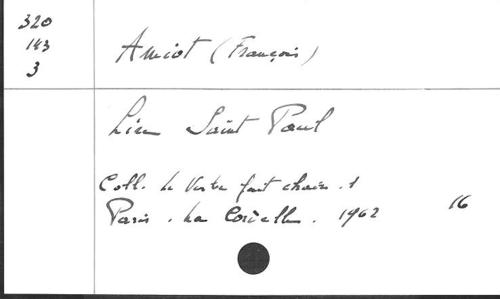 320
143
3
Amiot (François)
Lire Saint Paul
Coll. Le Verbe fait chair. 1
Paris. La Corielle. 1962 16